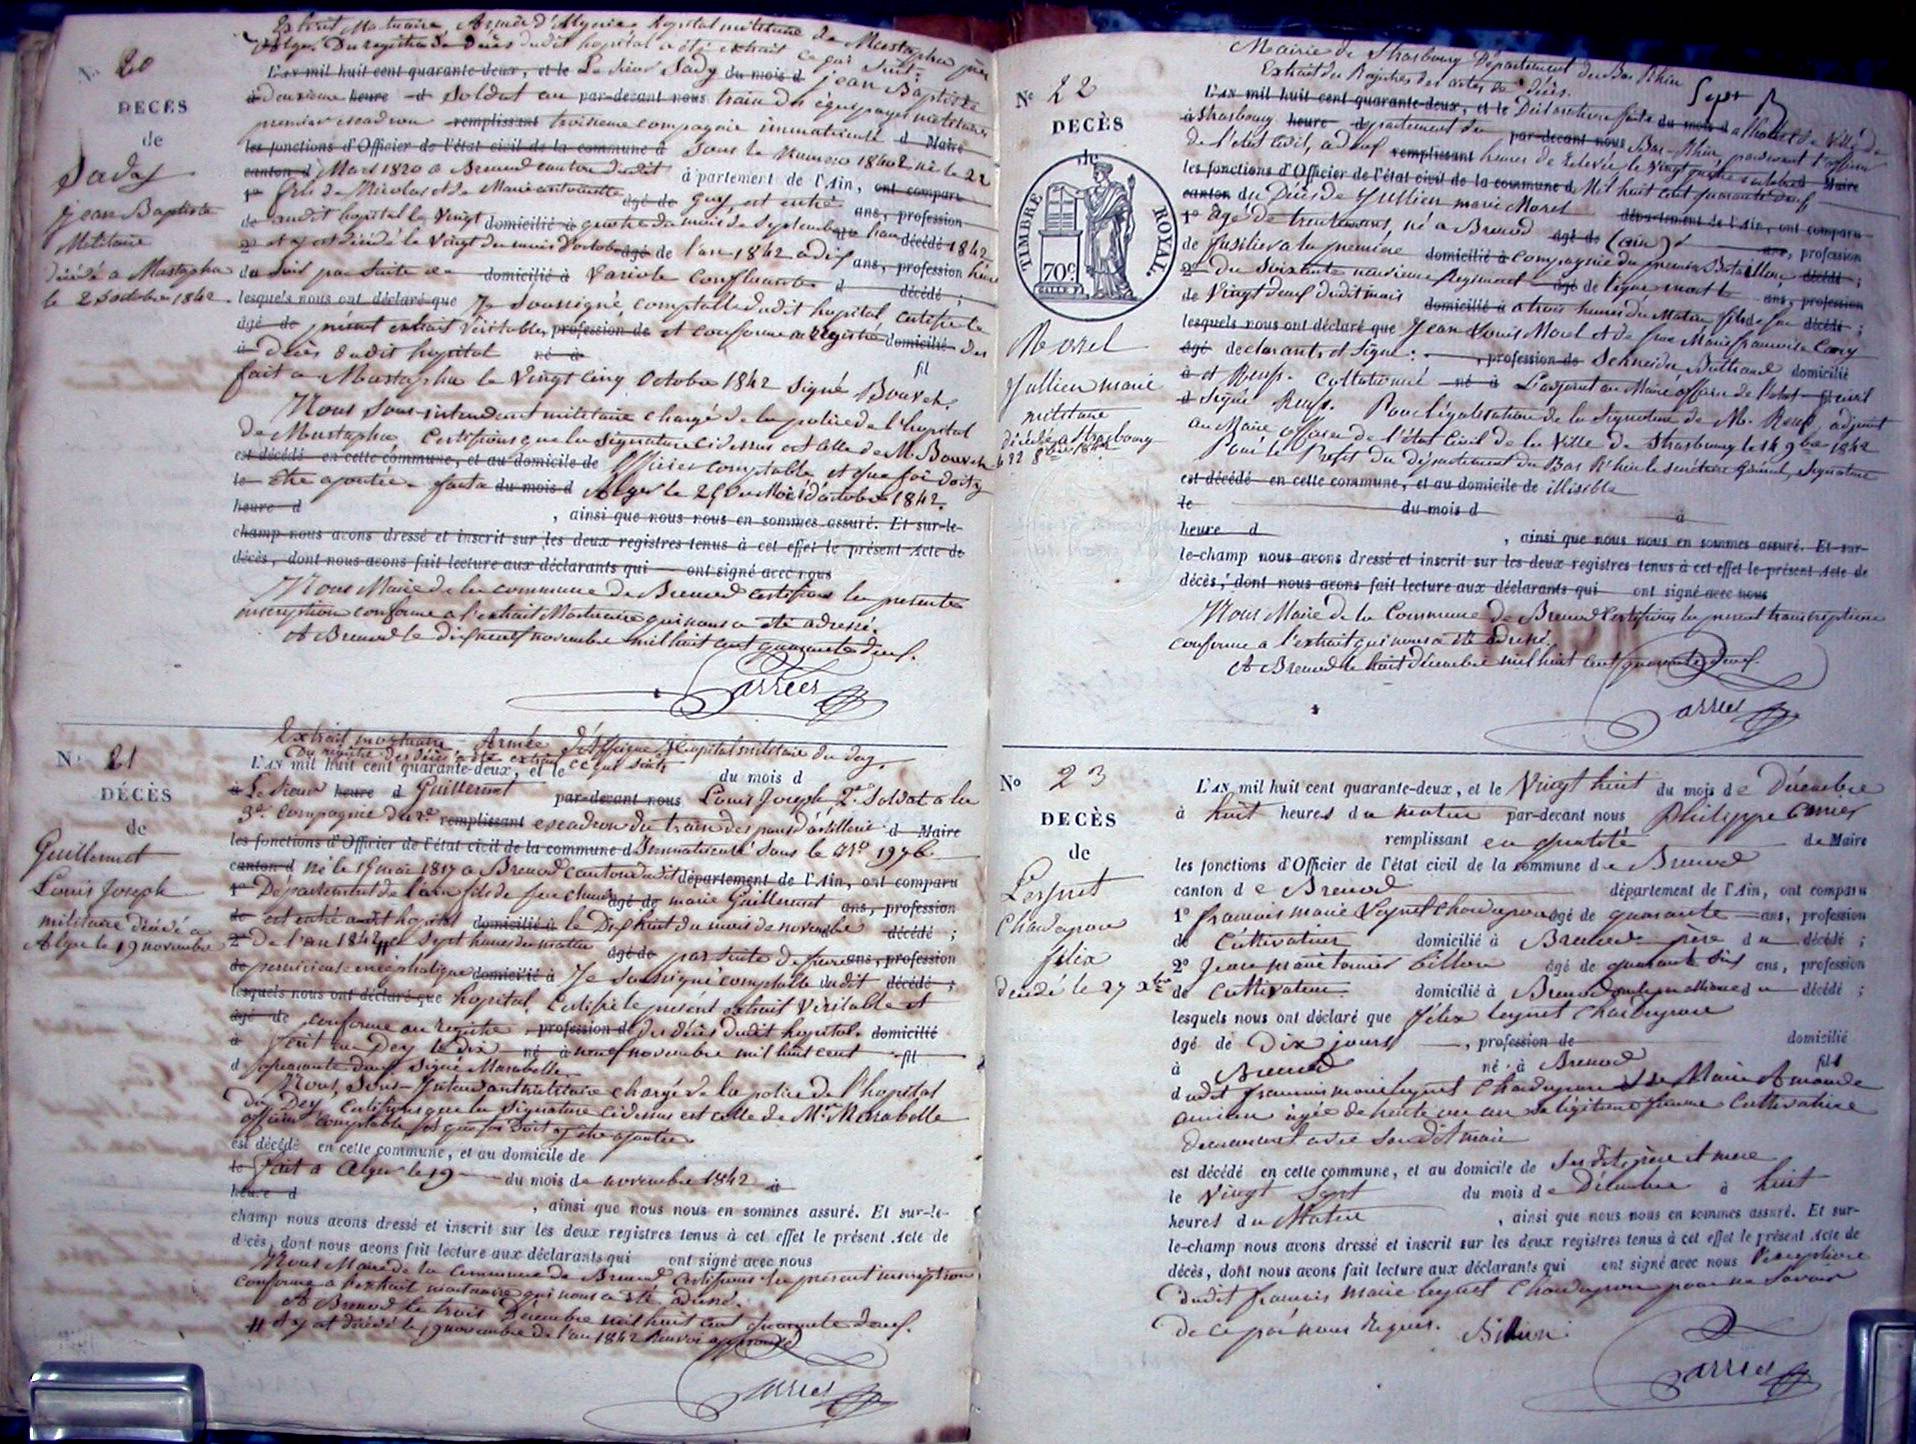 Extrait Mortuaire Armée d'Algérie hopital militaire de Mustapha près
Alger. Du registre de décès dudit hopital a été extrait ce qui suit :
N° 20
L'an mil huit cent quarante-deux, et le Le sieur Sady du mois d jean Baptiste
DECÈS
à deuxieme heure d Soldat au par-devant nous train des équipages militaires
premier escadron remplissant troisieme compagnie immatriculé d Maire
de
les fonctions d'Officier de l'état civil de la commune d Sous le Numero 18402 né le 22
Sady
canton d Mars 1820 a Brenod canton dudit département de l'Ain, ont comparu
jean Baptiste
1° fils de Nicolas et de Marie antoinette âgé de Guy est entré ans, profession
Militaire
de audit hopital le vingt domicilié à quatre du mois de Septembre l'an décédé 1842
décédé a Mustapha
2° et y est décédé le vingt du mois d'octobre âgé de l'an 1842 a dix ans, profession heures
le 2 octobre 1842.
du soir par suite de domicilié à Variole Confluante d décédé ;
lesquels nous ont déclaré que Je Soussigné, comptable dudit hopital certifie le
âgé de présent extrait véritable, profession de et conforme au registre domicilié des
à décès dudit hopital né à
fil
fait a Mustapha le Vingt Cinq Octobre 1842 Signé Bouvet.
Nous Sous-intendant militaire chargé de la police de l'hopital
de Mustapha, Certifions que la Signature ci dessus est celle de M. Bouvet
est décédé en cette commune, et au domicile de Officier comptable et que foi doit y
le être ajoutée. fait a du mois d Alger le 25 du Mois d'octobre 1842.
heure d , ainsi que nous nous en sommes assuré. Et sur-le-
champ nous avons dressé et inscrit sur les deux registres tenus à cet effet le présent Acte de
décès, dont nous avons fait lecture aux déclarants qui ont signé avec nous
Nous Maire de la commune de Brenod certifions la présente
inscription conforme a l'extrait Mortuaire qui nous a été adressé.
A Brenod le dix neuf novembre mil huit cent quarante deux.
Carrier
Extrait mortuaire Armée d'afrique Hopital militaire du dey.
Du registre des décès a été extrait ce qui suit :
N° 21
L'an mil huit cent quarante-deux, et le du mois d
DÉCÈS
à Le Sieur heure d Guillermet par-devant nous Louis Joseph 2e Soldat a la
3e compagnie du 2e remplissant escadron du train des parcs d'artillerie d Maire
de
les fonctions d'Officier de l'état civil de la commune d Immatriculé Sous le N° 1976
Guillermet
canton d né le 15 mai 1817 a Brenod canton dudit département de l'Ain, ont comparu
Louis Joseph
1° Département de l'ain fils de feu Claude âgé de marie Guillermet ans, profession
militaire décédé a
de est entré audit hopital domicilié à le Dix huit du mois de novembre décédé ;
Alger le 19 novembre
2° De l'an 1842 # a Sept heures du matin âgé de par suite de fievre ans, profession
de pernicieuse encephalique domicilié à Je soussigné comptable dudit décédé ;
lesquels nous ont déclaré que hopital, Certifie le présent extrait véritable et
âgé de conforme au registre profession de des décès dudit hopital. domicilié
à fait au Dey le dix né à neuf novembre mil huit cent fil
d quarante deux signé Marabelle.
Nous, Sous-Intendant militaire chargé de la police de l'hopital
du Dey, Certifions que la Signature ci dessus est celle de Mr Marabelle
officier comptable et que foi doit y être ajoutée
est décédé en cette commune, et au domicile de
le fait a Alger le 19 du mois de novembre 1842 à
heure d , ainsi que nous nous en sommes assuré. Et sur-le-
champ nous avons dressé et inscrit sur les deux registres tenus à cet effet le présent Acte de
décès, dont nous avons fait lecture aux déclarants qui ont signé avec nous
Nous Maire de la commune de Brenod Certifions la présente inscription
conforme a l'extrait mortuaire qui nous a été adressé.
A Brenod le trois Décembre mil huit cent quarante deux.
# et y est décédé le 19 novembre de l'an 1842 Renvoi approuvé
Carrier
Mairie de Strasbourg Département du Bas Rhin
Extrait du Registre des actes de décès.
N° 22
L'an mil huit cent quarante-deux, et le Déclaration faite du mois d a l'hotel de Ville de
DECÈS
à Strasbourg heure département du par-devant nous Bas-Rhin, pardevant l'officier
de
de l'état civil, a deux remplissant heures de relevée le vingt quatre octobre d Maire
les fonctions d'Officier de l'état civil de la commune d Mil huit cent quarante deux
canton du Décès de Jullien marie Morel département de l'Ain, ont comparu
1° âgé de trente ans, né a Brenod âgé de (ain) ans, profession
TIMBRE ROYAL.
70c
de fusilier a la première domicilié à compagnie du premier Bataillon, décédé ;
2° du Soixante neuvieme Regiment âgé de ligne mort le ans, profession
de Vingt deux dudit mois domicilié à a trois heures du Matin fils de feu décédé ;
lesquels nous ont déclaré que Jean Louis Morel et de feue Marie francoise Cary
Morel
âgé declarants et Signé : , profession de Schneider Bulliard domicilié
Jullien marie
à et Reuss. Collationné né à L'adjoint au Maire officier de l'état fil civil
militaire
d Signé Reuss. Pour légalisation de la Signature de M. Reuss, adjoint
décédé a Strasbourg
au Maire officier de l'état Civil de la Ville de Strasbourg le 14 9bre 1842
le 22 8bre 1842
Pour le Prefet du département du Bas Rhin le secrétaire Général, Signature
est décédé en cette commune, et au domicile de illisible
le du mois d à
heure d , ainsi que nous nous en sommes assuré. Et sur-
le-champ nous avons dressé et inscrit sur les deux registres tenus à cet effet le présent Acte de
décès, dont nous avons fait lecture aux déclarants qui ont signé avec nous
Nous Maire de la Commune de Brenod Certifions la présent transcription
conforme a l'extrait qui nous a été adressé.
A Brenod le huit décembre mil huit cent quarante deux.
Carrier
N° 23
L'an mil huit cent quarante-deux, et le Vingt huit du mois de Décembre
à huit heures du matin par-devant nous Philippe Carrier
DECÈS
remplissant en qualité de Maire
de
les fonctions d'Officier de l'état civil de la commune de Brenod
canton de Brenod département de l'Ain, ont comparu
Leynet
1° francois marie Leynet Chardeyron âgé de quarante ans, profession
Chardeyron
de Cultivateur domicilié à Brenod père du décédé ;
félix
2° Jean marie Tonier Billon âgé de quarante six ans, profession
décédé le 27 Xbre
de Cultivateur domicilié à Brenod du décédé ;
lesquels nous ont déclaré que félix leynet Chardeyron
âgé de Dix jours , profession de domicilié
à Brenod né à Brenod fils
dudit francois marie leynet Chardeyron et de Marie Amande
ancian âgée de trente un an Sa légitime femme Cultivatrice
demeurant avec Son dit mari
est décédé en cette commune, et au domicile de Ses dits père et mere
le Vingt Sept du mois de Décembre à huit
heures du Matin , ainsi que nous nous en sommes assuré. Et sur-
le-champ nous avons dressé et inscrit sur les deux registres tenus à cet effet le présent Acte de
décès, dont nous avons fait lecture aux déclarants qui ont signé avec nous l'exception
dudit francois marie leynet Chardeyron pour ne savoir
de ce par nous requis. Billion
Carrier